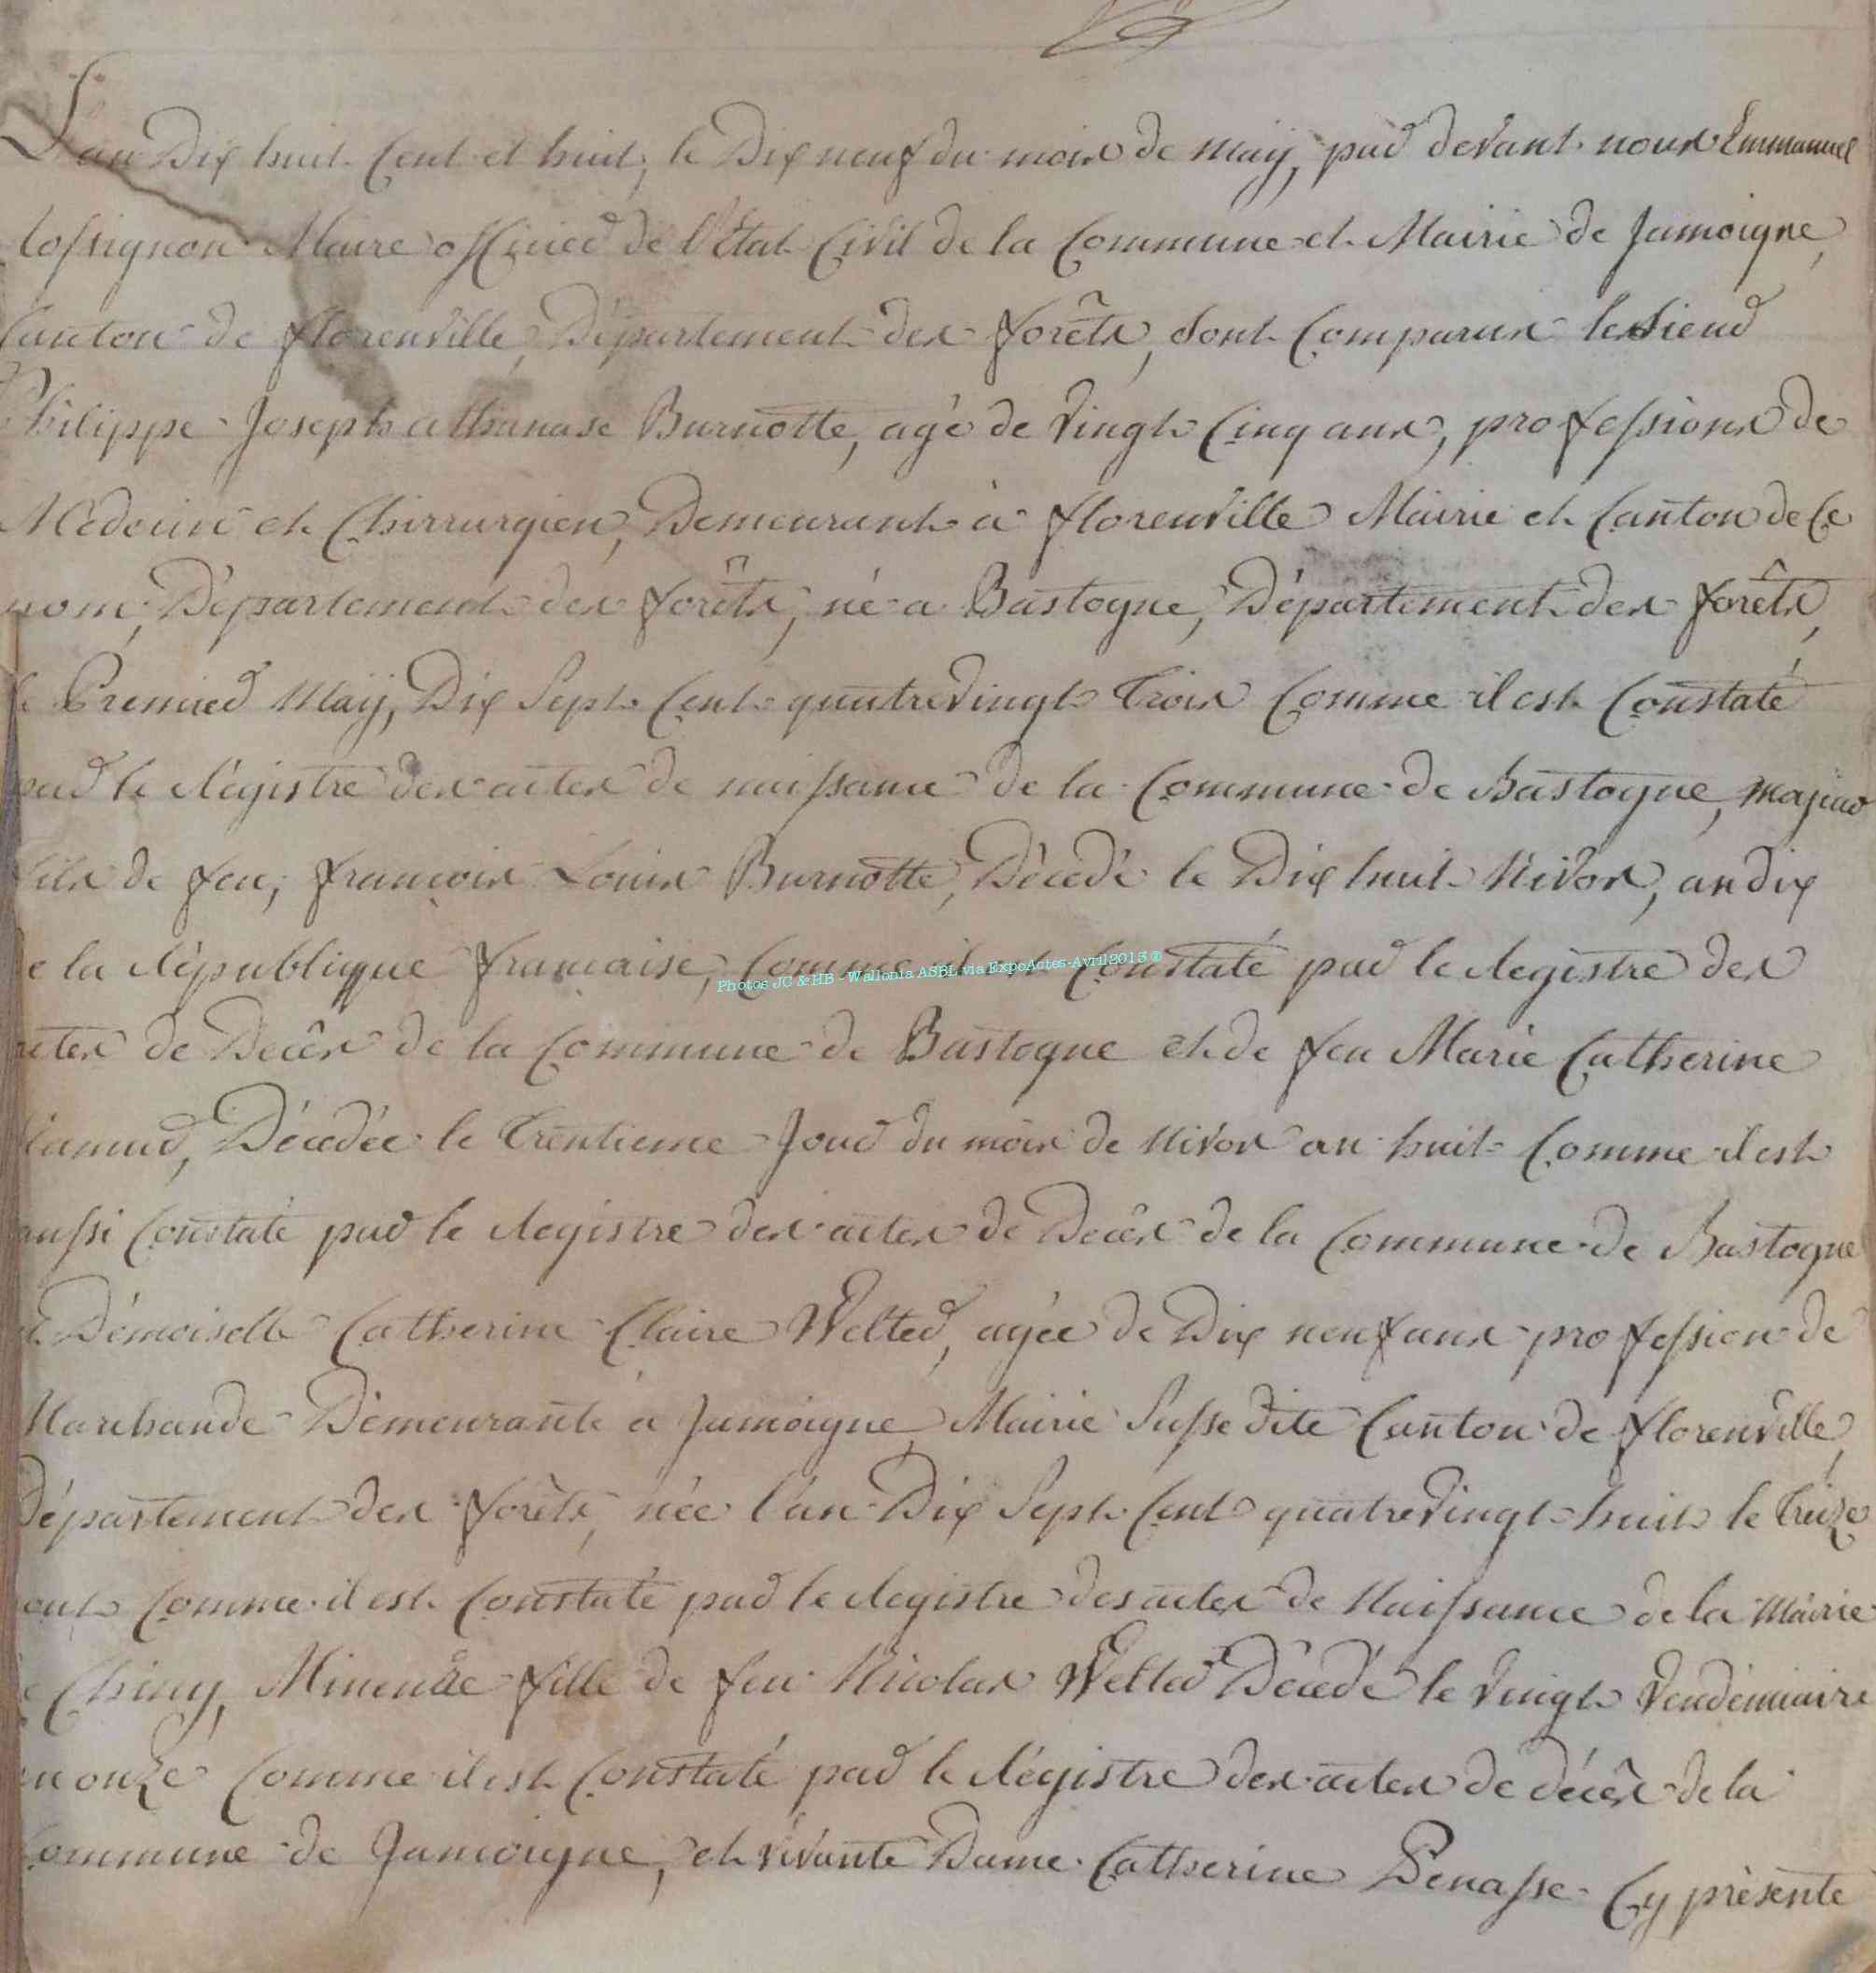 L'an Dix huit Cent et huit, le Dix neuf du mois de May, par devant nous Emmanuel
Rossignon Maire officier de l'État Civil de la Commune et Mairie de Jamoigne,
Canton de florenville, Département des forêts, sont Comparus le sieur
Philippe Joseph athanase Burnotte, agé de Vingt Cinq ans, professions de
Médecin et Chirrurgien, Demeurant à florenville Mairie et Canton de Ce
nom, Département des forêts, né a Bastogne, Département des forêts,
le Premier May, Dix Sept Cent quatre Vingt Trois Comme il est Constaté
par le Régistre des actes de naissance de la Commune de Bastogne, Majeur
fils de feu, francois Louis Burnotte, Décédé le Dix huit Nivos, an dix
de la République francaise, Comme il est Constaté par le Registre des
Photos JC & HB - Wallonia ASBL via ExpoActes-Avril2013 ®
actes de Decês de la Commune de Bastogne et de feu Marie Catherine
Décédée le Trentieme Jour du mois de Nivos an huit Comme il est
aussi Constaté par le Registre des actes de Decês de la Commune de Bastogne
et Démoiselle Catherine Claire Welter, agée de Dix neuf ans profession de
Marchande Démeurante à Jamoigne, Mairie Susse dite Canton de florenville,
Département des forêts, née l'an Dix Sept Cent quatre Vingt huit le Treize
aout Comme il est Constaté par le Registre des actes de Naissance de la Mairie
de Chiny, Mineure fille de feu Nicolas Welter Décédé le Vingt Vendémiaire
an onze Comme il est Constaté par le Régistre des actes de décês de la
Commune de Jamoigne, et vivante Dame Catherine Penasse Cy présente